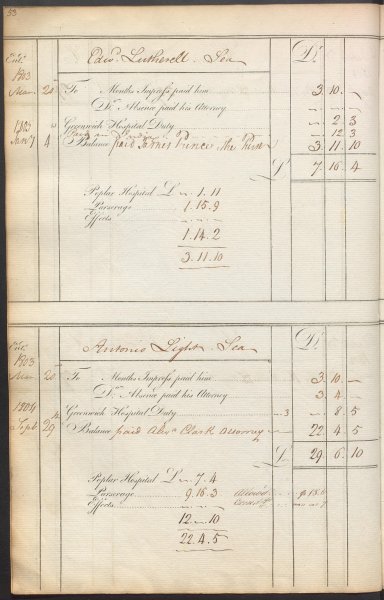 53
Edwd. Lutherell. Sea Dr.
1803
Mar. 20 To Months Impress paid him 3. 10. -
Do. Absence paid his Attorney
Greenwich Hospital Duty 2 3
12. 3
Jany 4 Balance paid James Prince, the Purser 3. 11. 10
£ 7. 16. 4
Poplar Hospital £ 1. 11
Purserage 1. 15. 9
Effects
1. 14. 2
3. 11. 10
Antonio Light. Sea Dr.
1803
Mar. 20 To Months Impress paid him 3. 10. -
Do. Absence paid his Attorney 3. 4. -
1804
Greenwich Hospital Duty 3 8. 5
Sept. 29 Balance paid Alexr. Clark Attorney 22. 4. 5
£ 29. 6. 10
Poplar Hospital £ 7. 4
Purserage 9. 16. 3
Effects
12. 10
22. 4. 5